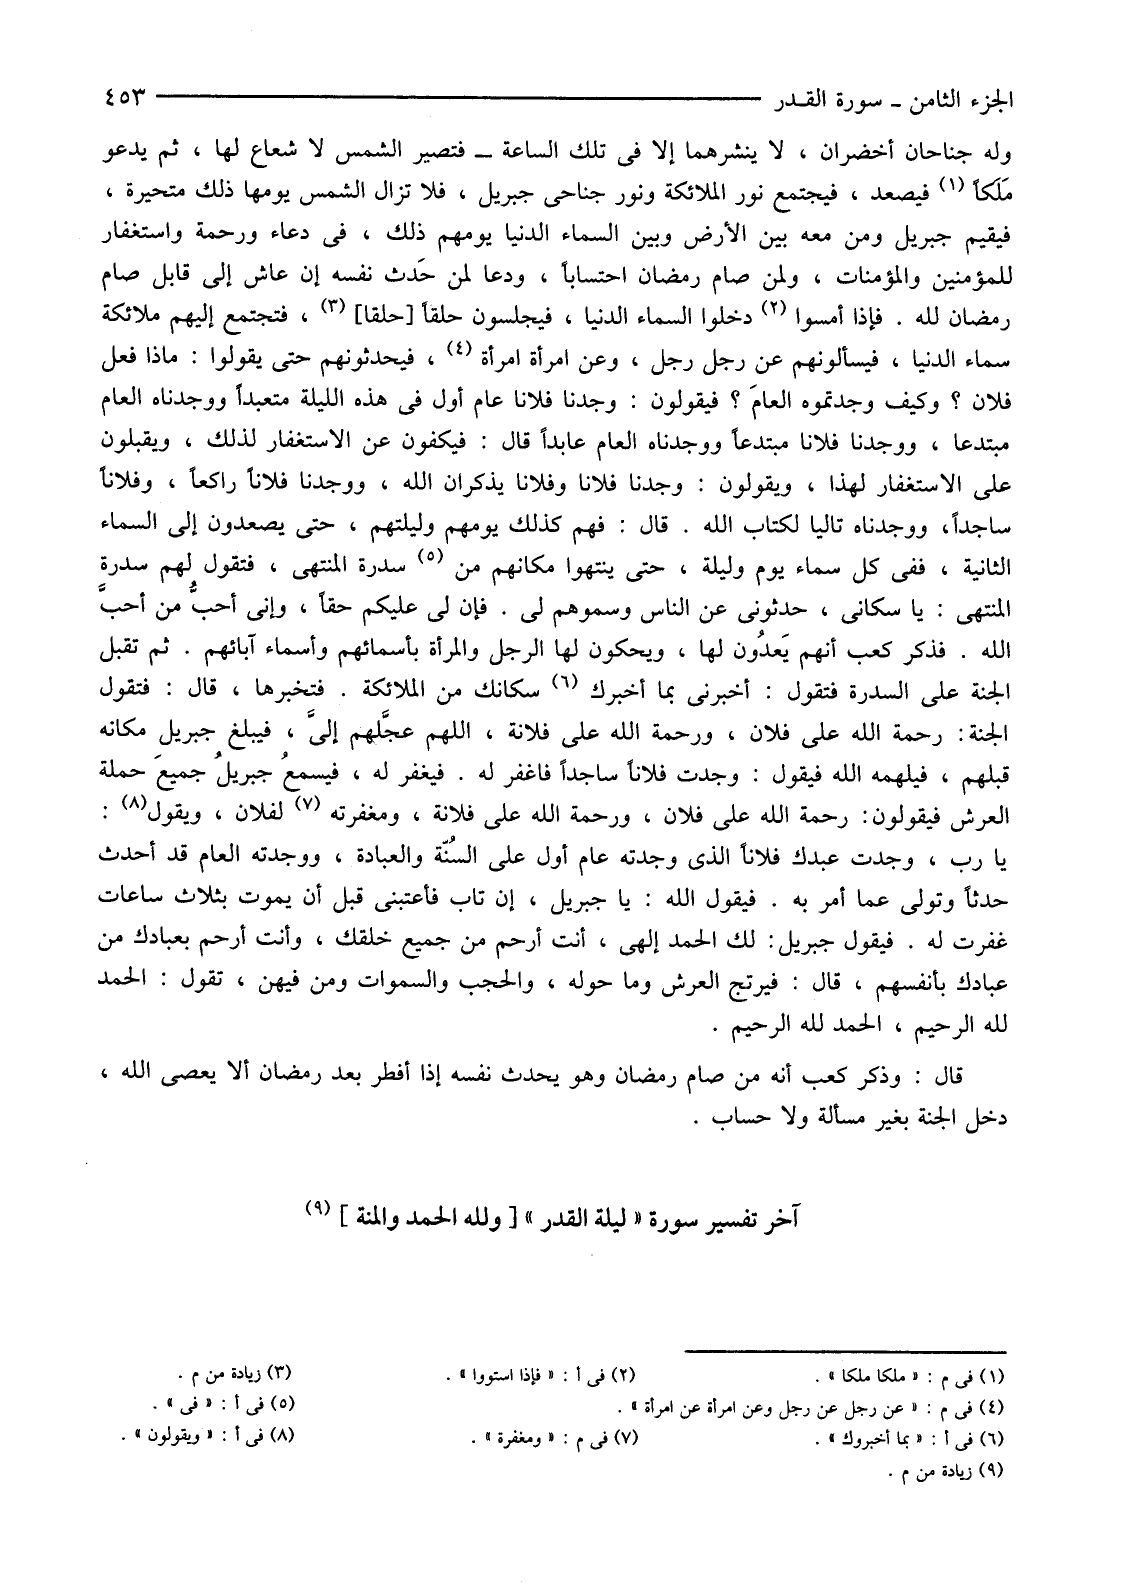 الجزء الثامن - سورة القدر ٤٥٣
وله جناحان أخضران ، لا ينشرهما إلا فى تلك الساعة – فتصير الشمس لا شعاع لها ، ثم يدعو
مَلَكاً (١) فيصعد ، فيجتمع نور الملائكة ونور جناحى جبريل ، فلا تزال الشمس يومها ذلك متحيرة ،
فيقيم جبريل ومن معه بين الأرض وبين السماء الدنيا يومهم ذلك ، فى دعاء ورحمة واستغفار
للمؤمنين والمؤمنات ، ولمن صام رمضان احتساباً ، ودعا لمن حَدث نفسه إن عاش إلى قابل صام
رمضان لله . فإذا أمسوا (٢) دخلوا السماء الدنيا ، فيجلسون حلقاً [حلقا] (٣) ، فتجتمع إليهم ملائكة
سماء الدنيا ، فيسألونهم عن رجل رجل ، وعن امرأة امرأة (٤) ، فيحدثونهم حتى يقولوا : ماذا فعل
فلان ؟ وكيف وجدتموه العامَ ؟ فيقولون : وجدنا فلانا عام أول فى هذه الليلة متعبداً ووجدناه العام
مبتدعا ، ووجدنا فلانا مبتدعاً ووجدناه العام عابداً قال : فيكفون عن الاستغفار لذلك ، ويقبلون
على الاستغفار لهذا ، ويقولون : وجدنا فلانا وفلانا يذكران الله ، ووجدنا فلاناً راكعاً ، وفلاناً
ساجداً، ووجدناه تاليا لكتاب الله . قال : فهم كذلك يومهم وليلتهم ، حتى يصعدون إلى السماء
الثانية ، ففى كل سماء يوم وليلة ، حتى ينتهوا مكانهم من (٥) سدرة المنتهى ، فتقول لهم سدرة
المنتهى : يا سكانى ، حدثونى عن الناس وسموهم لى . فإن لى عليكم حقاً ، وإنى أحبُّ من أحبَّ
الله . فذكر كعب أنهم يَعدُون لها ، ويحكون لها الرجل والمرأة بأسمائهم وأسماء آبائهم . ثم تقبل
الجنة على السدرة فتقول : أخبرنى بما أخبرك (٦) سكانك من الملائكة . فتخبرها ، قال : فتقول
الجنة: رحمة الله على فلان ، ورحمة الله على فلانة ، اللهم عجَّلهم إلىَّ ، فيبلغ جبريل مكانه
قبلهم ، فيلهمه الله فيقول : وجدت فلاناً ساجداً فاغفر له . فيغفر له ، فيسمعُ جبريلُ جميعَ حملة
العرش فيقولون: رحمة الله على فلان ، ورحمة الله على فلانة ، ومغفرته (٧) لفلان ، ويقول(٨) :
يا رب ، وجدت عبدك فلاناً الذى وجدته عام أول على السُنّة والعبادة ، ووجدته العام قد أحدث
حدثاً وتولى عما أمر به . فيقول الله : يا جبريل ، إن تاب فأعتبنى قبل أن يموت بثلاث ساعات
غفرت له . فيقول جبريل: لك الحمد إلهى ، أنت أرحم من جميع خلقك ، وأنت أرحم بعبادك من
عبادك بأنفسهم ، قال : فيرتج العرش وما حوله ، والحجب والسموات ومن فيهن ، تقول : الحمد
لله الرحيم ، الحمد لله الرحيم .
قال : وذكر كعب أنه من صام رمضان وهو يحدث نفسه إذا أفطر بعد رمضان ألا يعصى الله ،
دخل الجنة بغير مسألة ولا حساب .
آخر تفسير سورة « ليلة القدر » [ ولله الحمد والمنة ] (٩)
(١) فى م : « ملكا ملكا » . (٢) فى أ : « فإذا استووا » . (٣) زيادة من م .
(٤) فى م : « عن رجل عن رجل وعن امرأة عن امرأة » . (٥) فى أ : « فى » .
(٦) فى أ : « بما أخبروك » . (٧) فى م : « ومغفرة » . (٨) فى أ : « ويقولون » .
(٩) زيادة من م .